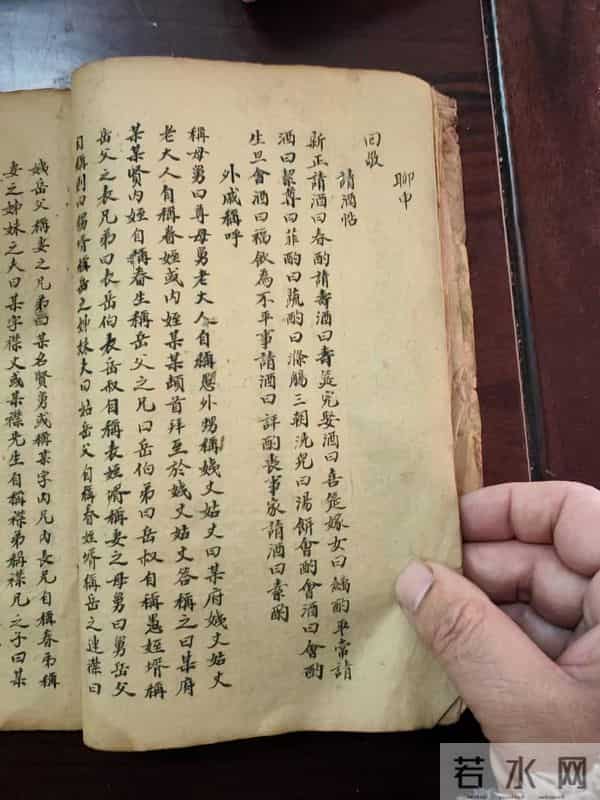 聊申
回敬
請酒帖
新正請酒曰春酌請壽酒曰壽筵完娶酒曰喜筵嫁女曰觴酌平常請
酒曰潔尊曰菲酌曰蔬酌曰滌觴三朝洗兒曰湯餅會酌會酒曰會酌
生旦會酒曰福做為不平事請酒曰評酌喪事家請酒曰素酌
外戚稱呼
稱母舅曰尊母舅老大人自稱愚外甥稱姨丈姑丈曰某府姨丈姑丈
老大人自稱眷姪或內姪某某頓首拜至於姨丈姑丈答稱之曰某府
某某賢內姪自稱眷生稱岳父之兄曰岳伯弟曰岳叔自稱愚姪壻稱
岳父之表兄弟曰表岳伯表岳叔自稱表姪壻稱妻之母舅曰舅岳父
自稱則曰甥壻稱岳之姊妹夫曰姑岳父自稱眷姪壻稱岳之連襟曰
姨岳父稱妻之兄弟曰某名賢舅或稱某字內兄內長兄自稱眷弟稱
妻之姊妹之夫曰某字襟丈或某襟先生自稱襟弟稱襟兄之子曰某
若水网